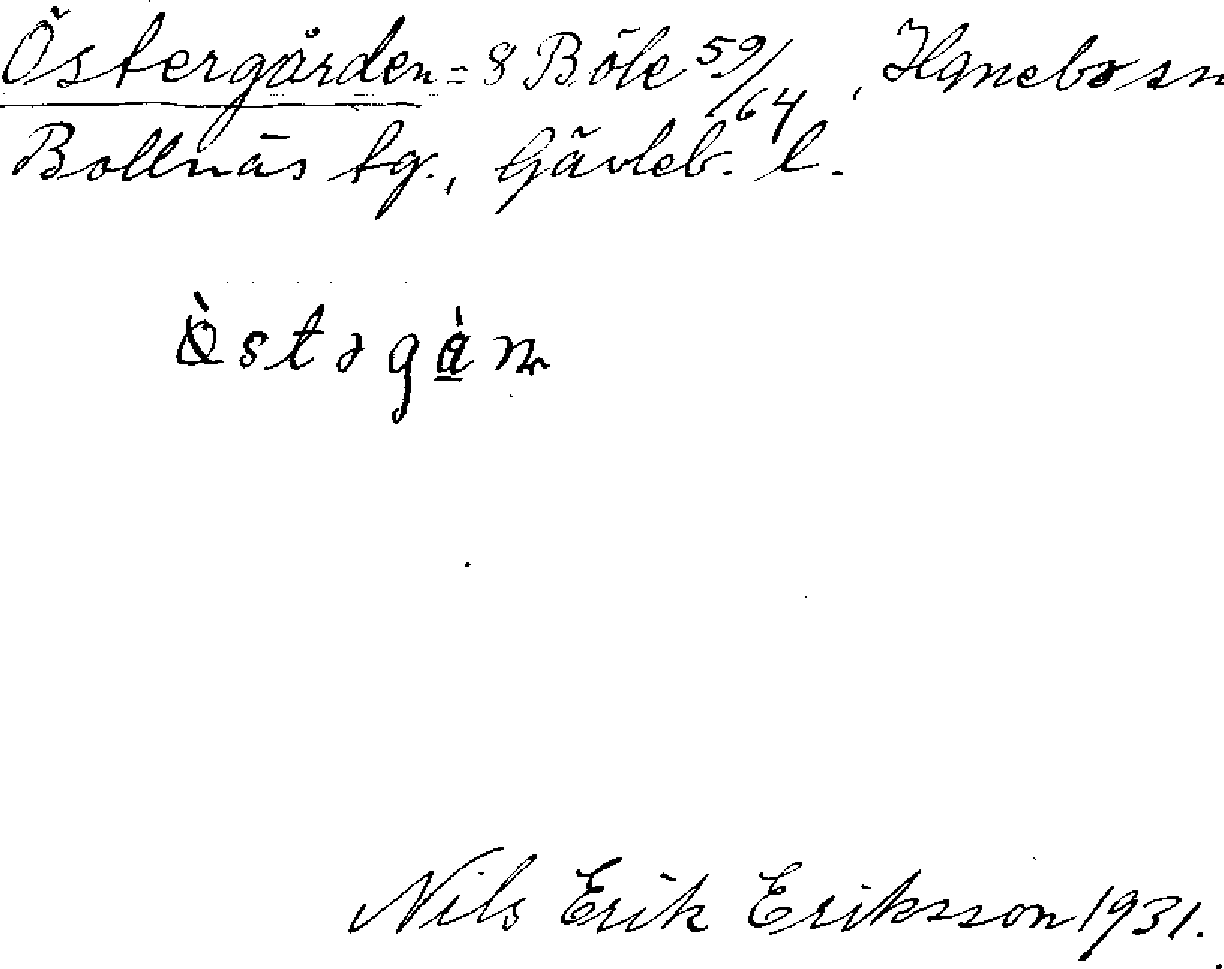 Östergården = 8 Böle 59/64, Hanebo sn
Bollnäs tg., Gävleb. l.
Nils Erik Eriksson 1931.